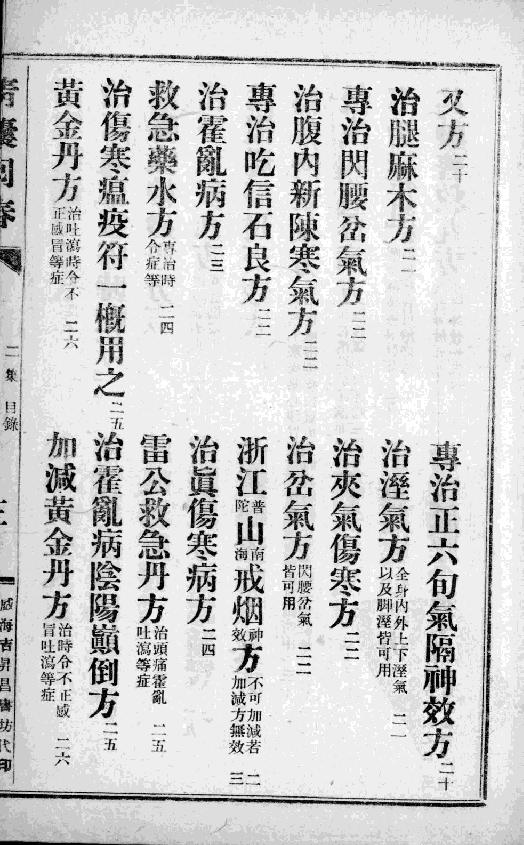 又方二十
專治正六旬氣隔神效方二十
治腿麻木方二一
治溼氣方全身內外上下溼氣以及脚溼皆可用二一
專治閃腰岔氣方二二
治夾氣傷寒方二二
治腹內新陳寒氣方二二
治岔氣方閃腰岔氣皆可用二二
專治吃信石良方二二
浙江普陀山南海戒烟神效方不可加減若加減方無效二三
治霍亂病方二三
治眞傷寒病方二四
救急藥水方専治時令症等二四
雷公救急丹方治頭痛霍亂吐瀉等症二五
治傷寒瘟疫符一概用之二五
治霍亂病陰陽顚倒方二五
黃金丹方治吐瀉時令不正感冒等症二六
加減黃金丹方治時令不正感冒吐瀉等症二六
青囊回春
二集
目錄
威海吉昇昌書坊代印